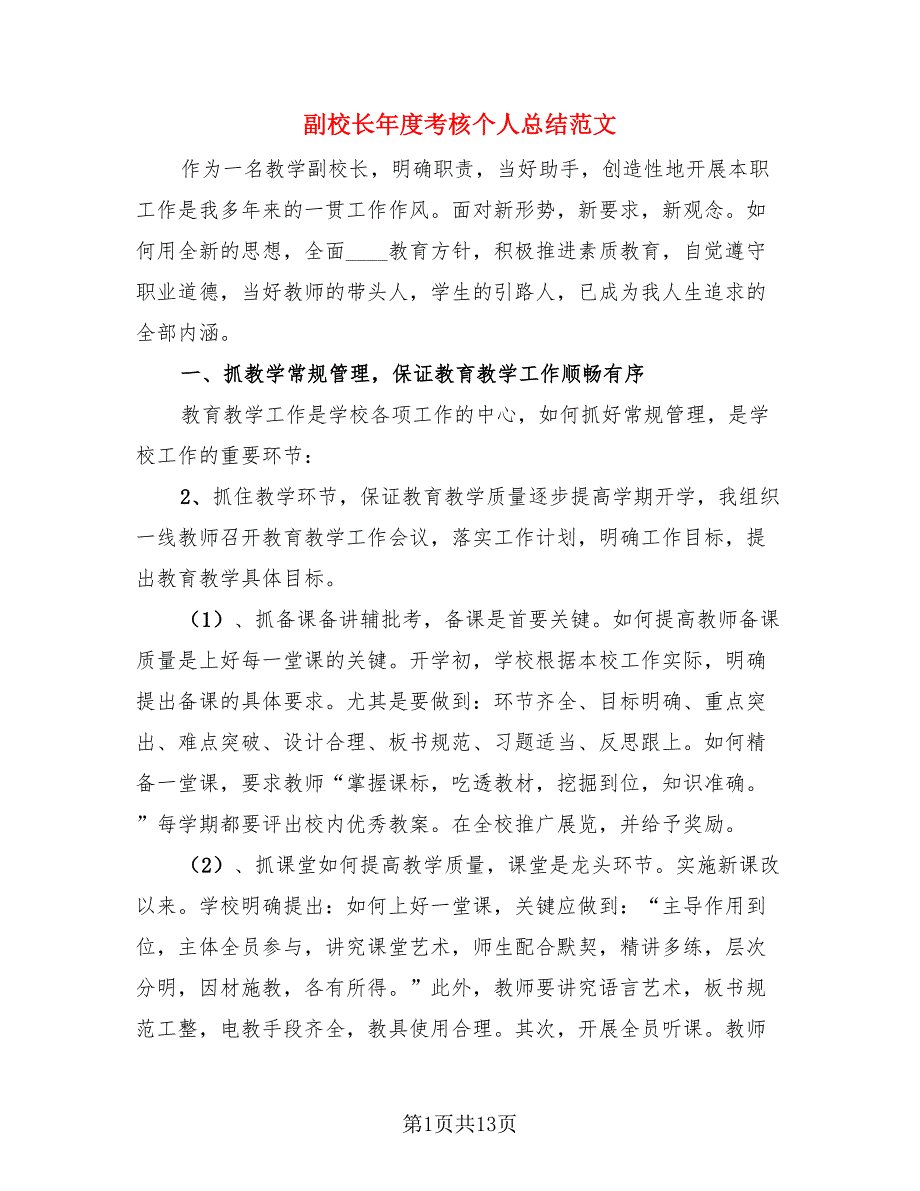 副校长年度考核个人总结范文
作为一名教学副校长，明确职责，当好助手，创造性地开展本职
工作是我多年来的一贯工作作风。面对新形势，新要求，新观念。如
何用全新的思想，全面____教育方针，积极推进素质教育，自觉遵守
职业道德，当好教师的带头人，学生的引路人，已成为我人生追求的
全部内涵。
一、抓教学常规管理，保证教育教学工作顺畅有序
教育教学工作是学校各项工作的中心，如何抓好常规管理，是学
校工作的重要环节：
2、抓住教学环节，保证教育教学质量逐步提高学期开学，我组织
一线教师召开教育教学工作会议，落实工作计划，明确工作目标，提
出教育教学具体目标。
（1）、抓备课备讲辅批考，备课是首要关键。如何提高教师备课
质量是上好每一堂课的关键。开学初，学校根据本校工作实际，明确
提出备课的具体要求。尤其是要做到：环节齐全、目标明确、重点突
出、难点突破、设计合理、板书规范、习题适当、反思跟上。如何精
备一堂课，要求教师“掌握课标，吃透教材，挖掘到位，知识准确。
”每学期都要评出校内优秀教案。在全校推广展览，并给予奖励。
（2）、抓课堂如何提高教学质量，课堂是龙头环节。实施新课改
以来。学校明确提出：如何上好一堂课，关键应做到：“主导作用到
位，主体全员参与，讲究课堂艺术，师生配合默契，精讲多练，层次
分明，因材施教，各有所得。”此外，教师要讲究语言艺术，板书规
范工整，电教手段齐全，教具使用合理。其次，开展全员听课。教师
第1页共13页